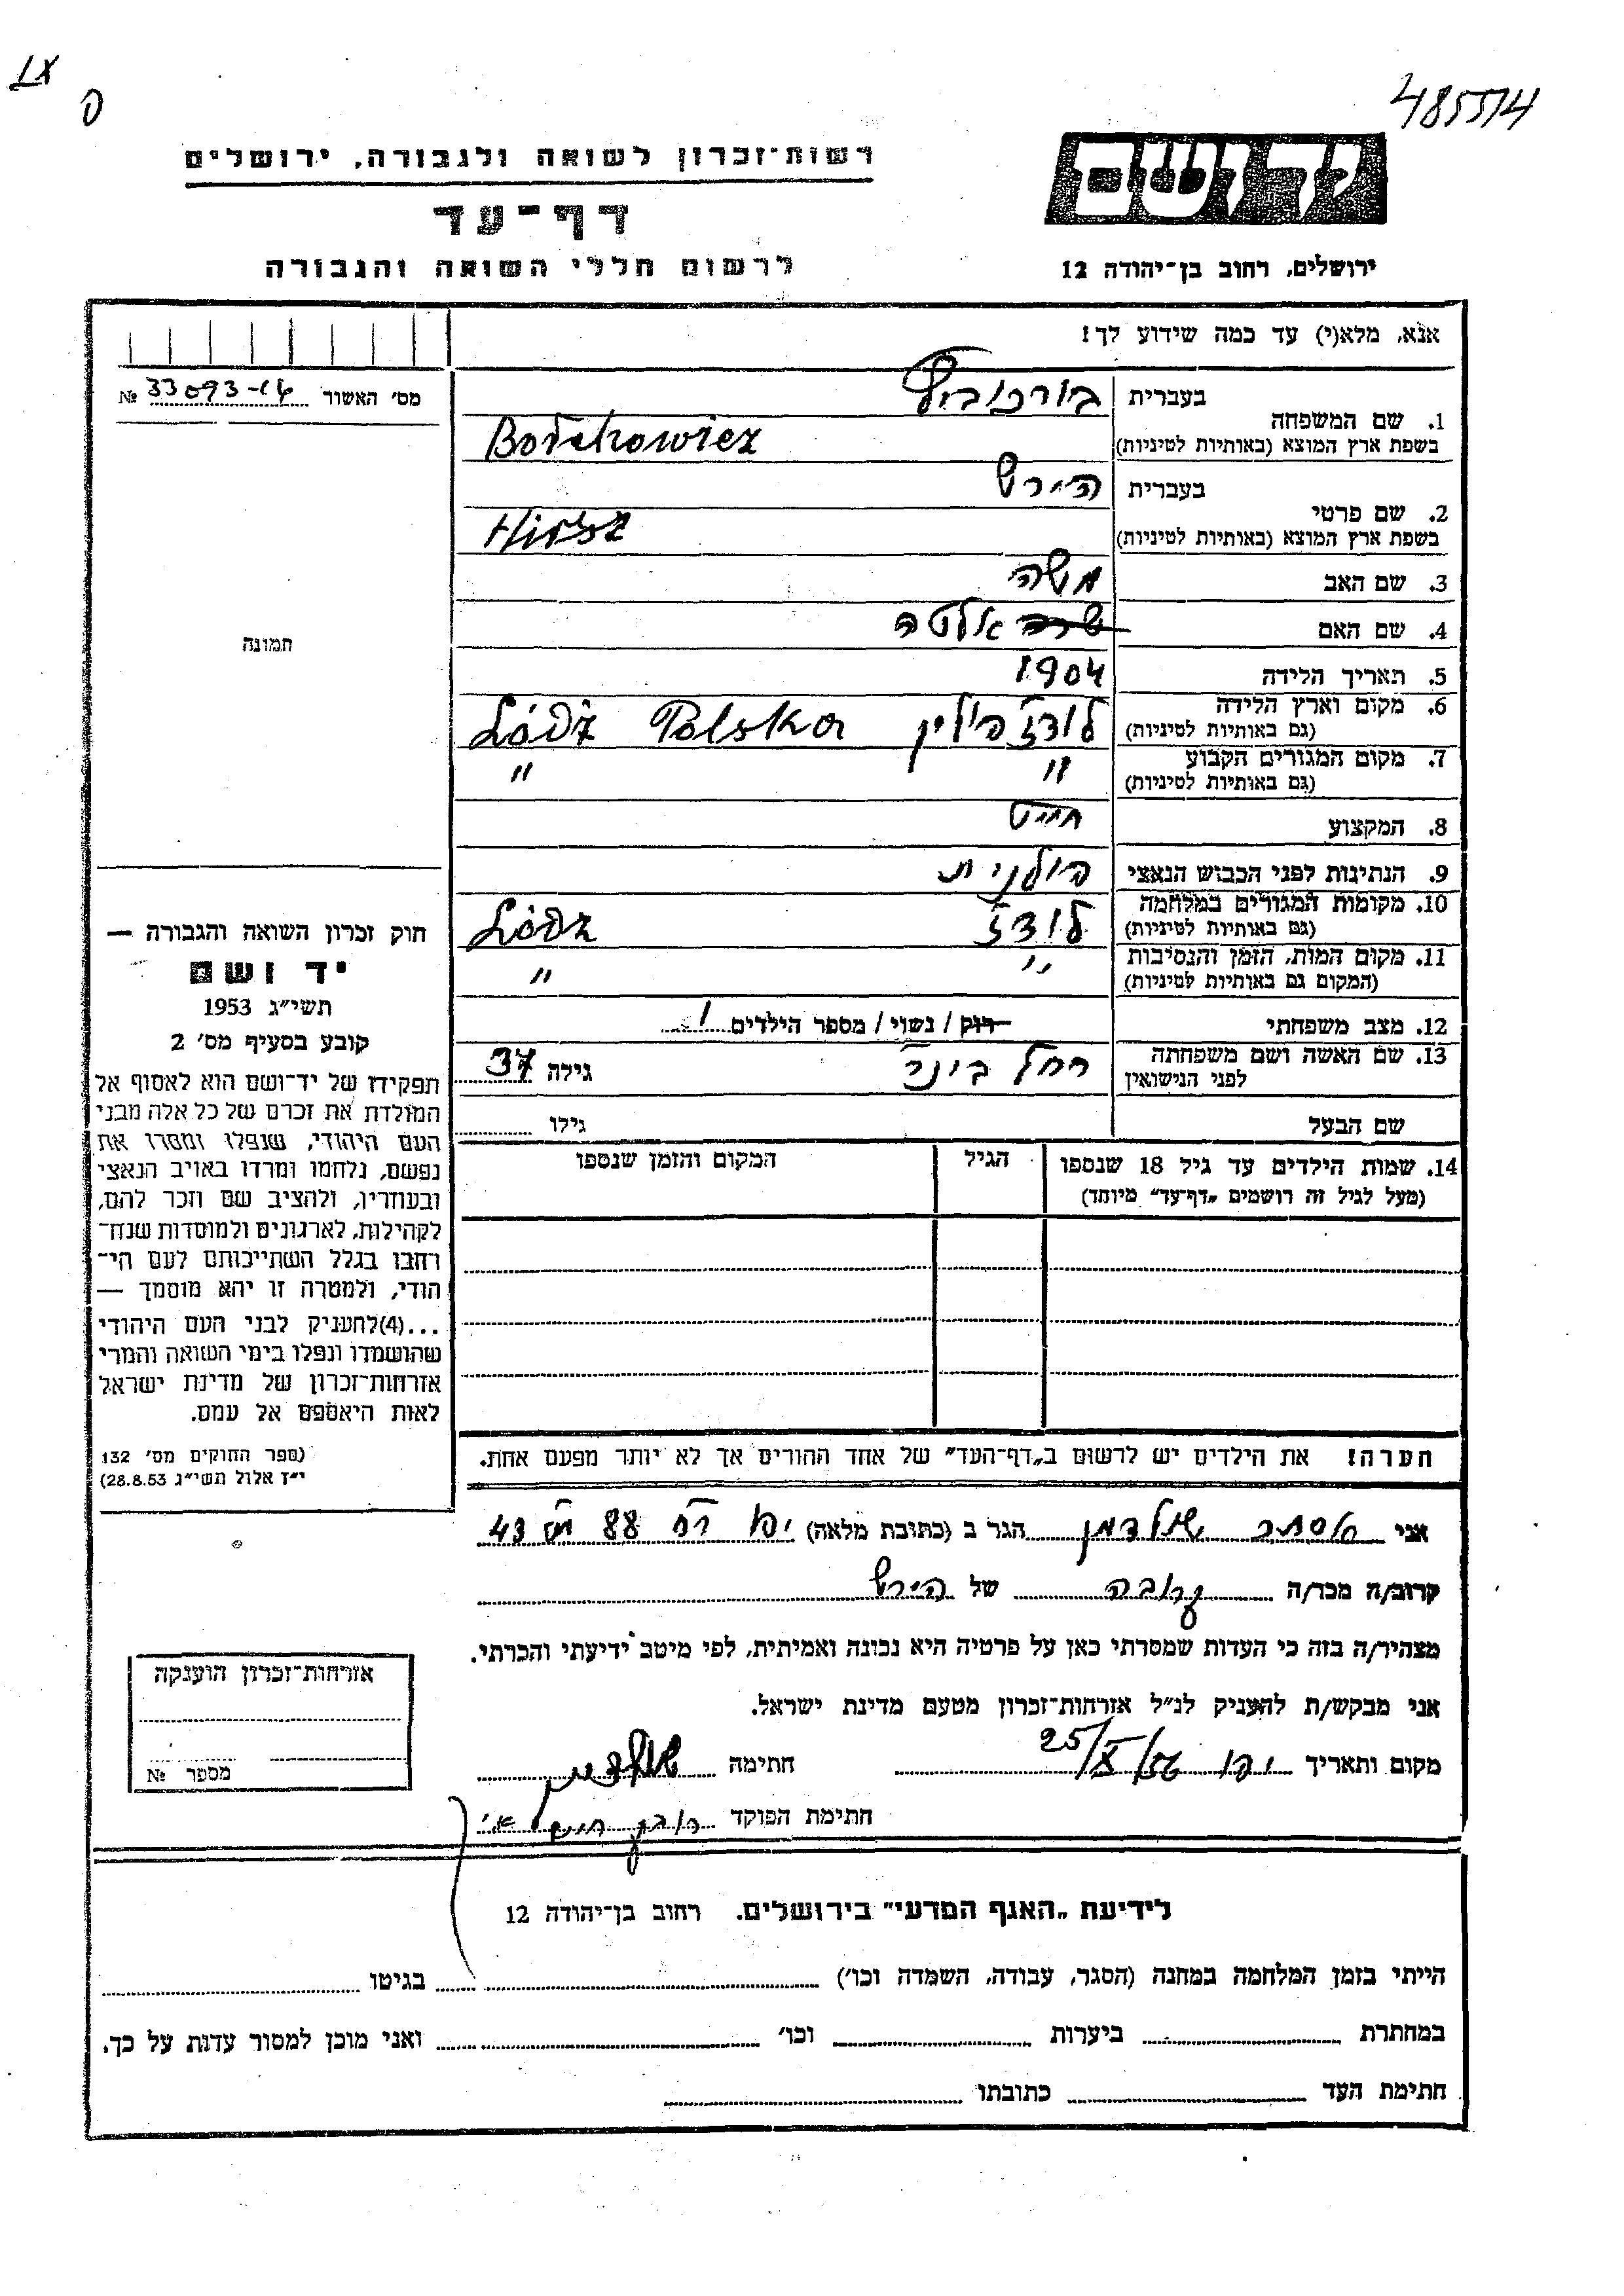 IX
ס
485514
רשות־זכרון לשואה ולגבורה, ירושלים
דף־עד
לרשום חללי השואה והגבורה
יד ושם
ירושלים, רחוב בן־יהודה 12
אנא, מלא(י) עד כמה שידוע לך!
מס׳ האשור 33093-14 №
תמונה
1. שם המשפחה
בעברית בורכוביץ
בשפת ארץ המוצא (באותיות לטיניות) Borchowicz
2. שם פרטי
בעברית הירש
בשפת ארץ המוצא (באותיות לטיניות) Hirsz
3. שם האב משה
4. שם האם שרה אלטה
5. תאריך הלידה 1904
6. מקום וארץ הלידה לודז פולין Łódź Polska
(גם באותיות לטיניות)
7. מקום המגורים הקבוע " "
(גם באותיות לטיניות)
8. המקצוע חייט
9. הנתינות לפני הכבוש הנאצי פולנית
10. מקומות המגורים במלחמה לודז Łódź
(גם באותיות לטיניות)
11. מקום המות, הזמן והנסיבות " "
(המקום גם באותיות לטיניות)
12. מצב משפחתי רוק / נשוי / מספר הילדים 1
13. שם האשה ושם משפחתה רחל בונר גילה 37
לפני הנישואין
שם הבעל גילו
14. שמות הילדים עד גיל 18 שנספו הגיל המקום והזמן שנספו
(מעל לגיל זה רושמים „דף־עד” מיוחד)
הערה! את הילדים יש לרשום ב„דף־העד” של אחד ההורים אך לא יותר מפעם אחת.
חוק זכרון השואה והגבורה —
יד ושם
תשי״ג 1953
קובע בסעיף מס׳ 2
תפקידו של יד־ושם הוא לאסוף אל
המולדת את זכרם של כל אלה מבני
העם היהודי, שנפלו ומסרו את
נפשם, נלחמו ומרדו באויב הנאצי
ובעוזריו, ולהציב שם וזכר להם,
לקהילות, לארגונים ולמוסדות שנח־
רבו בגלל השתייכותם לעם הי־
הודי, ולמטרה זו יהא מוסמך —
...(4)להעניק לבני העם היהודי
שהושמדו ונפלו בימי השואה והמרי
אזרחות־זכרון של מדינת ישראל
לאות היאספם אל עמם.
(ספר החוקים מס׳ 132
י״ז אלול תשי״ג 28.8.53)
אני אסתר שולדמן הגר ב (כתובת מלאה) יפו רח 88 מס 43
קרוב/ה מכר/ה קרובה של הירש
מצהיר/ה בזה כי העדות שמסרתי כאן על פרטיה היא נכונה ואמיתית, לפי מיטב ידיעתי והכרתי.
אני מבקש/ת להעניק לנ״ל אזרחות־זכרון מטעם מדינת ישראל.
מקום ותאריך יפו 25/X/56 חתימה שולדמן
חתימת הפוקד
אזרחות־זכרון הוענקה
מספר №
לידיעת „האגף המדעי” בירושלים. רחוב בן־יהודה 12
הייתי בזמן המלחמה במחנה (הסגר, עבודה, השמדה וכו׳) בגיטו
במחתרת ביערות וכו׳ ואני מוכן למסור עדות על כך.
חתימת העד כתובתו